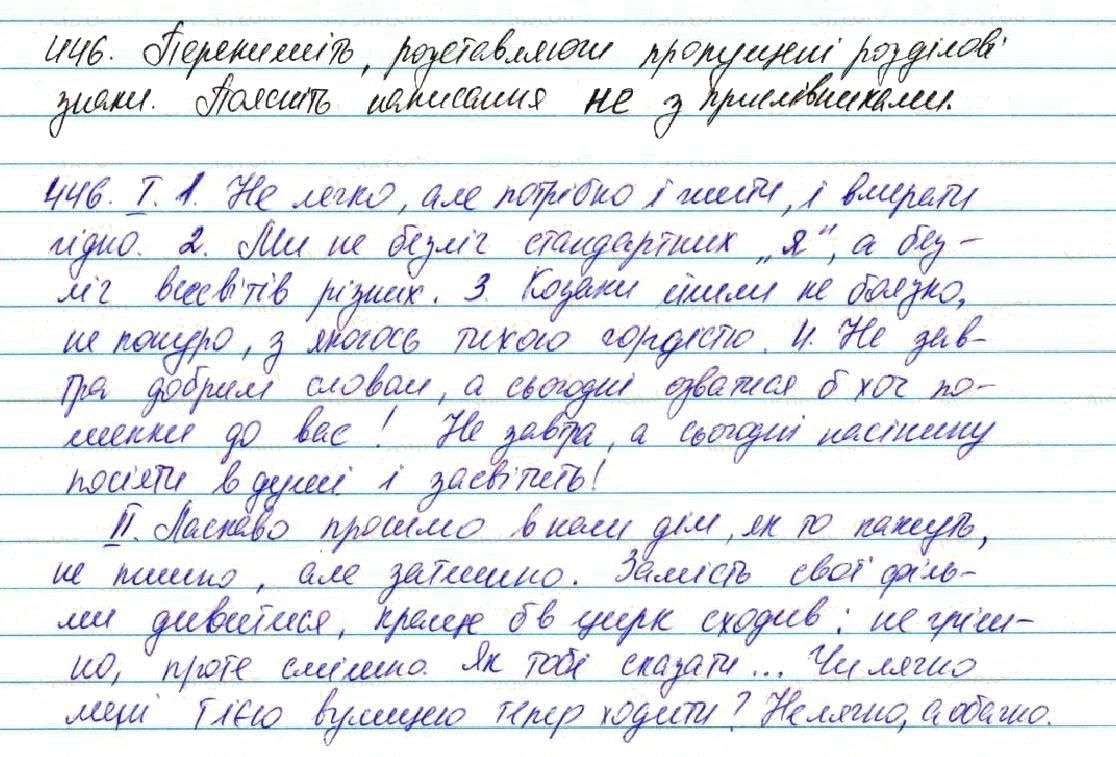 446. Перепишіть, розставляючи пропущені розділові
знаки. Поясніть написання не з прислівниками.
446. I. 1. Не легко, але потрібно і жити, і вмирати
гідно. 2. Ми не безліч стандартних „я", а без-
ліч всесвітів різних. 3. Козаки йшли не боязко,
не похмуро, з якоюсь тихою гордістю. 4. Не зав-
тра добрим словом, а сьогодні озватися б хоч по-
шепки до вас! Не завтра, а сьогодні насінину
посіяти в душі і засвітить!
II. Ласкаво просимо в наш дім, як то кажуть,
не пишно, але затишно. Замість свої філь-
ми дивитися, краще б в цирк сходив: не гріш-
но, проте смішно. Як тобі сказати... Чи лячно
мені тією вулицею тепер ходити? Не лячно, а обачно.